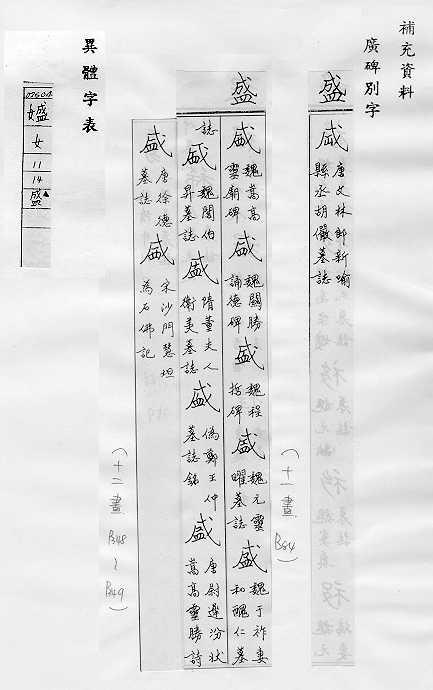 補充資料
廣碑別字
盛
盛 唐文林郎新喻
縣丞胡儼墓誌
(十一畫 B84)
盛
盛 魏嵩高
靈廟碑
盛 魏闕勝
誦德碑
盛 魏程
哲碑
盛 魏元靈
曜墓誌
盛 魏于祚妻
和醜仁墓
誌
盛 魏閻伯
昇墓誌
盛 隋董夫人
衛美墓誌
盛 偽鄭王仲
墓誌銘
盛 唐尉遲汾狀
嵩高靈勝詩
盛 唐徐德
墓誌
盛 宋沙門慧坦
為石佛記
(十二畫 B48~B49)
異體字表
女
11
14
盛